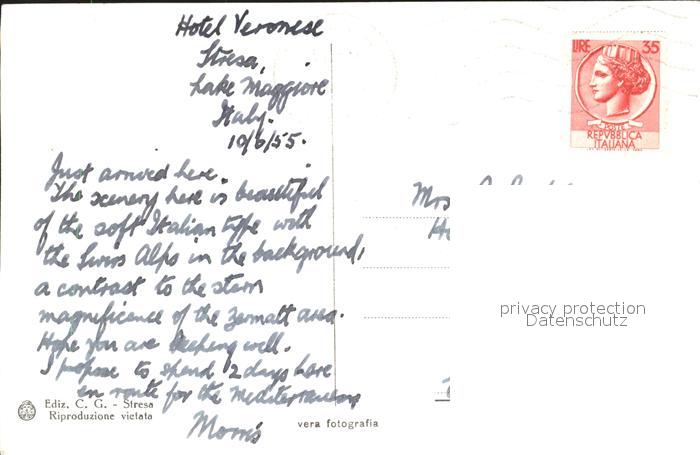 Hotel Veronese
Stresa,
Lake Maggiore
Italy.
10/6/55.
Just arrived here.
The scenery here is beautiful
of the soft Italian type with
the Swiss Alps in the background,
a contrast to the stern
magnificence of the Zermatt area.
Hope you are keeping well.
I propose to spend 2 days here
en route for the Mediterranean
Morris
Ediz. C. G. - Stresa
Riproduzione vietata
vera fotografia
LIRE 35
POSTE
REPVBBLICA
ITALIANA
Mrs
privacy protection
Datenschutz